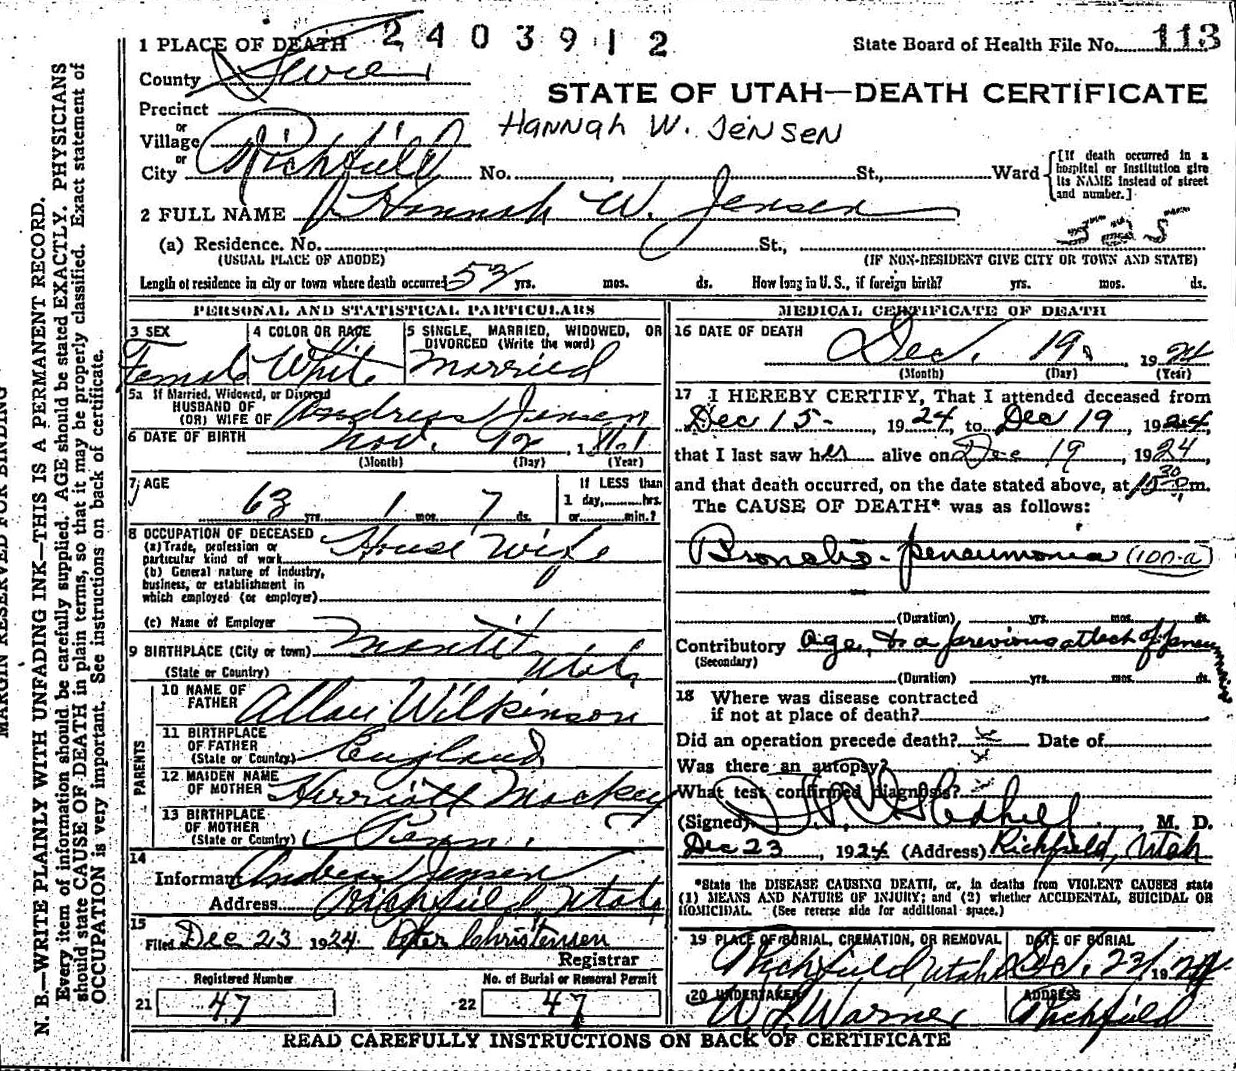 1 PLACE OF DEATH 2 4 0 3 9 1 2 State Board of Health File No. 113
County Sevier
STATE OF UTAH—DEATH CERTIFICATE
Precinct
or
Village
HANNAH W. JENSEN
or
City Richfield No. St., Ward [If death occurred in a hospital or institution give its NAME instead of street and number.]
2 FULL NAME Hannah W. Jensen
525
(a) Residence. No. St.,
(USUAL PLACE OF ABODE) (IF NON-RESIDENT GIVE CITY OR TOWN AND STATE)
Length of residence in city or town where death occurred 53 yrs. mos. ds. How long in U. S., if foreign birth? yrs. mos. ds.
PERSONAL AND STATISTICAL PARTICULARS
3 SEX
Female
4 COLOR OR RACE
White
5 SINGLE, MARRIED, WIDOWED, OR DIVORCED (Write the word)
Married
5a If Married, Widowed, or Divorced
HUSBAND OF
(OR) WIFE OF Andreas Jensen
6 DATE OF BIRTH Nov. 12, 1861
(Month) (Day) (Year)
7 AGE
63 yrs. 1 mos. 7 ds.
If LESS than
1 day, hrs.
or min.?
8 OCCUPATION OF DECEASED
(a) Trade, profession or
particular kind of work House Wife
(b) General nature of industry,
business, or establishment in
which employed (or employer)
(c) Name of Employer
9 BIRTHPLACE (City or town) Manti
(State or Country) Utah
PARENTS
10 NAME OF
FATHER Allan Wilkinson
11 BIRTHPLACE
OF FATHER
(State or Country) England
12 MAIDEN NAME
OF MOTHER Harriott Mackey
13 BIRTHPLACE
OF MOTHER
(State or Country) Penn.
14
Informant Andreas Jensen
Address Richfield Utah
15
Filed Dec 23 1924 Peter Christensen
Registrar
Registered Number No. of Burial or Removal Permit
21 47 22 47
MEDICAL CERTIFICATE OF DEATH
16 DATE OF DEATH
Dec. 19, 1924
(Month) (Day) (Year)
17 I HEREBY CERTIFY, That I attended deceased from
Dec 15 - 1924, to Dec 19 1924
that I last saw her alive on Dec 19, 1924,
and that death occurred, on the date stated above, at m.
The CAUSE OF DEATH* was as follows:
Broncho-pneumonia (100-a)
(Duration) yrs. mos. ds.
Contributory age, & a previous attack of
(Secondary)
(Duration) yrs. mos. ds.
18 Where was disease contracted
if not at place of death?
Did an operation precede death? Date of
Was there an autopsy?
What test confirmed diagnosis?
(Signed) M. D.
Dec 23, 1924 (Address) Richfield, Utah
*State the DISEASE CAUSING DEATH, or, in deaths from VIOLENT CAUSES state
(1) MEANS AND NATURE OF INJURY; and (2) whether ACCIDENTAL, SUICIDAL OR
HOMICIDAL. (See reverse side for additional space.)
19 PLACE OF BURIAL, CREMATION, OR REMOVAL
Richfield Utah
DATE OF BURIAL
Dec. 23, 1924
20 UNDERTAKER
W L Warner
ADDRESS
Richfield
READ CAREFULLY INSTRUCTIONS ON BACK OF CERTIFICATE
MARGIN RESERVED FOR BINDING
N. B.—WRITE PLAINLY WITH UNFADING INK—THIS IS A PERMANENT RECORD.
Every item of information should be carefully supplied. AGE should be stated EXACTLY. PHYSICIANS
should state CAUSE OF DEATH in plain terms, so that it may be properly classified. Exact statement of
OCCUPATION is very important. See instructions on back of certificate.